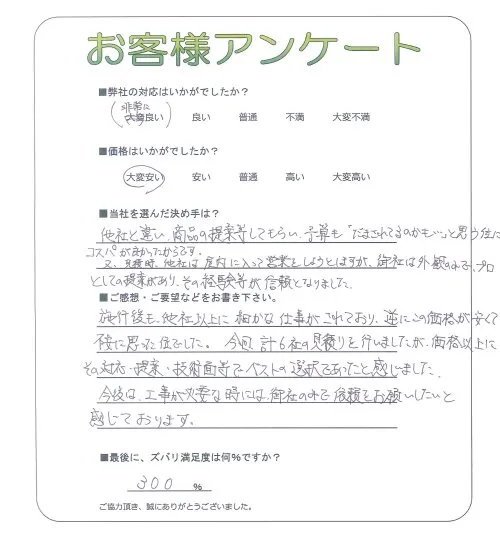 お客様アンケート
■弊社の対応はいかがでしたか?
非常に
大変良い 良い 普通 不満 大変不満
■価格はいかがでしたか?
大変安い 安い 普通 高い 大変高い
■当社を選んだ決め手は?
他社と違い、商品の提案等してもらい、予算も「だまされてるのかも…」と思う位に
コスパが良かったからです。
又、見積時、他社は屋内に入って営業をしようとしますが、御社は外観のみで、プロ
としての提案があり、その経験等が信頼となりました。
■ご感想・ご要望などをお書き下さい。
施行後も、他社以上に細かな仕事がされており、逆にこの価格が安くて
不安に思った位でした。今回、計6社の見積りを行いましたが、価格以上に
その対応・提案・技術面等でベストの選択であったと感じました。
今後は、工事が必要な時には、御社のみで依頼をお願いしたいと
感じております。
■最後に、ズバリ満足度は何%ですか?
300 %
ご協力頂き、誠にありがとうございました。